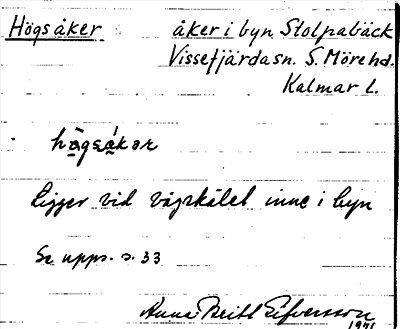 Högsåker åker i byn Stolpabäck
Vissefjärda sn. S. Möre hd.
Kalmar l.
hö̱gså̱kər
Ligger vid vägskälet inne i byn
Se upps. s. 33
Anna Britt Elfversson
1971